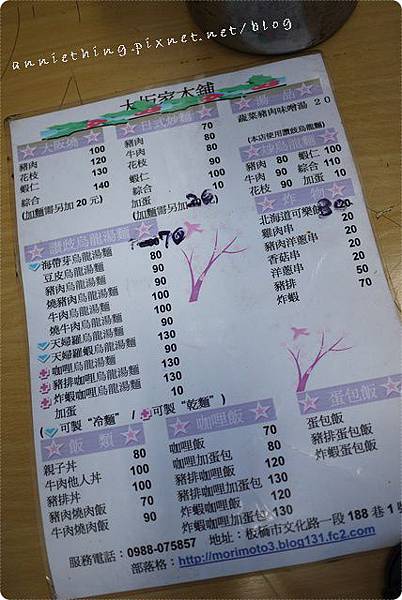 anniething.pixnet.net/blog
大阪家本舖
大阪燒
豬肉 100
牛肉 120
花枝 130
蝦仁
綜合 140
(加麵需另加 20 元)
日式炒麵
豬肉 70
牛肉 80
花枝 90
蝦仁 100
綜合 110
加蛋
(加麵需另加 20
湯品
蔬菜豬肉味噌湯 20
(本店使用讚歧烏龍麵)
炒烏龍麵
豬肉 80 蝦仁 100
牛肉 90 綜合 110
花枝 90 加蛋 10
炸物
北海道可樂餅 30
雞肉串 20
豬肉洋蔥串 20
香菇串 20
洋蔥串 20
豬排 50
炸蝦 70
讚歧烏龍湯麵
海帶芽烏龍湯麵 70
豆皮烏龍湯麵 80
豬肉烏龍湯麵 90
燒豬肉烏龍湯麵 100
牛肉烏龍湯麵 90
燒牛肉烏龍湯麵 100
天婦羅烏龍湯麵 90
天婦羅蝦烏龍湯麵 130
咖哩烏龍湯麵 90
豬排咖哩烏龍湯麵 130
炸蝦咖哩烏龍湯麵 130
加蛋 10
( 可製“冷麵” / 可製“乾麵” )
飯類
親子丼 80
牛肉他人丼 100
豬排丼 100
豬肉燒肉飯 70
牛肉燒肉飯 90
咖哩飯
咖哩飯 70
咖哩加蛋飯 80
豬排咖哩飯 120
豬排咖哩加蛋飯 130
炸蝦咖哩飯 120
炸蝦咖哩加蛋飯 130
蛋包飯
蛋包飯
豬排蛋包飯
炸蝦蛋包飯
服務電話：0988-075857 地址：板橋市文化路一段 188 巷 1
部落格：http://morimoto3.blog131.fc2.com